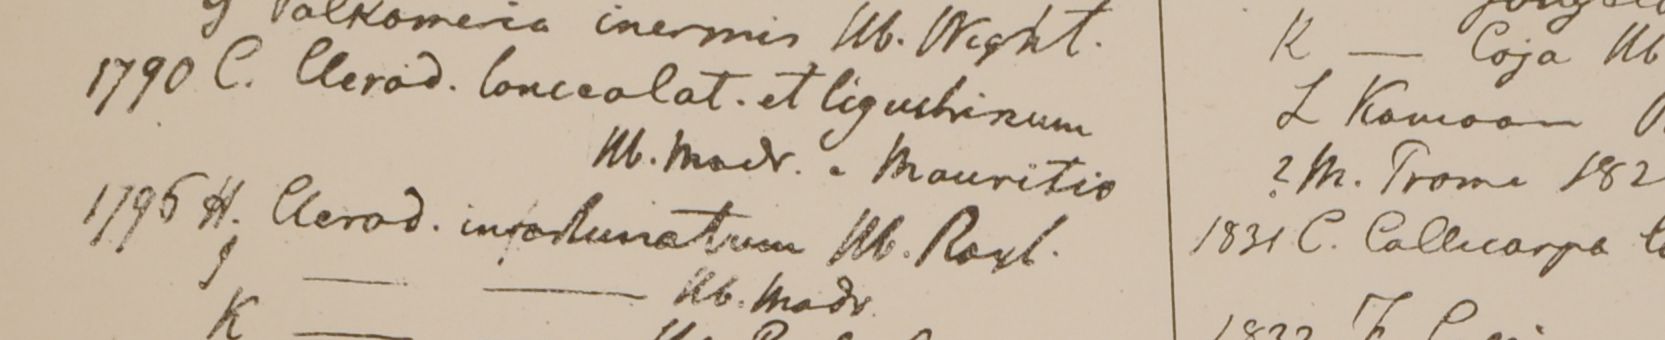 g Valkameria inermis Hb. Wight.
1790 C. Clerod. lanceolat. et ligustrinum
Hb. Madr. e Mauritio
1796 H. Clerod. infortunatum Hb. Roxl.
I — — Hb. Madr.
K —
K — Goja Hb
L Kamoon
? M. Prome 182
1831 C. Callicarpa
1832 F